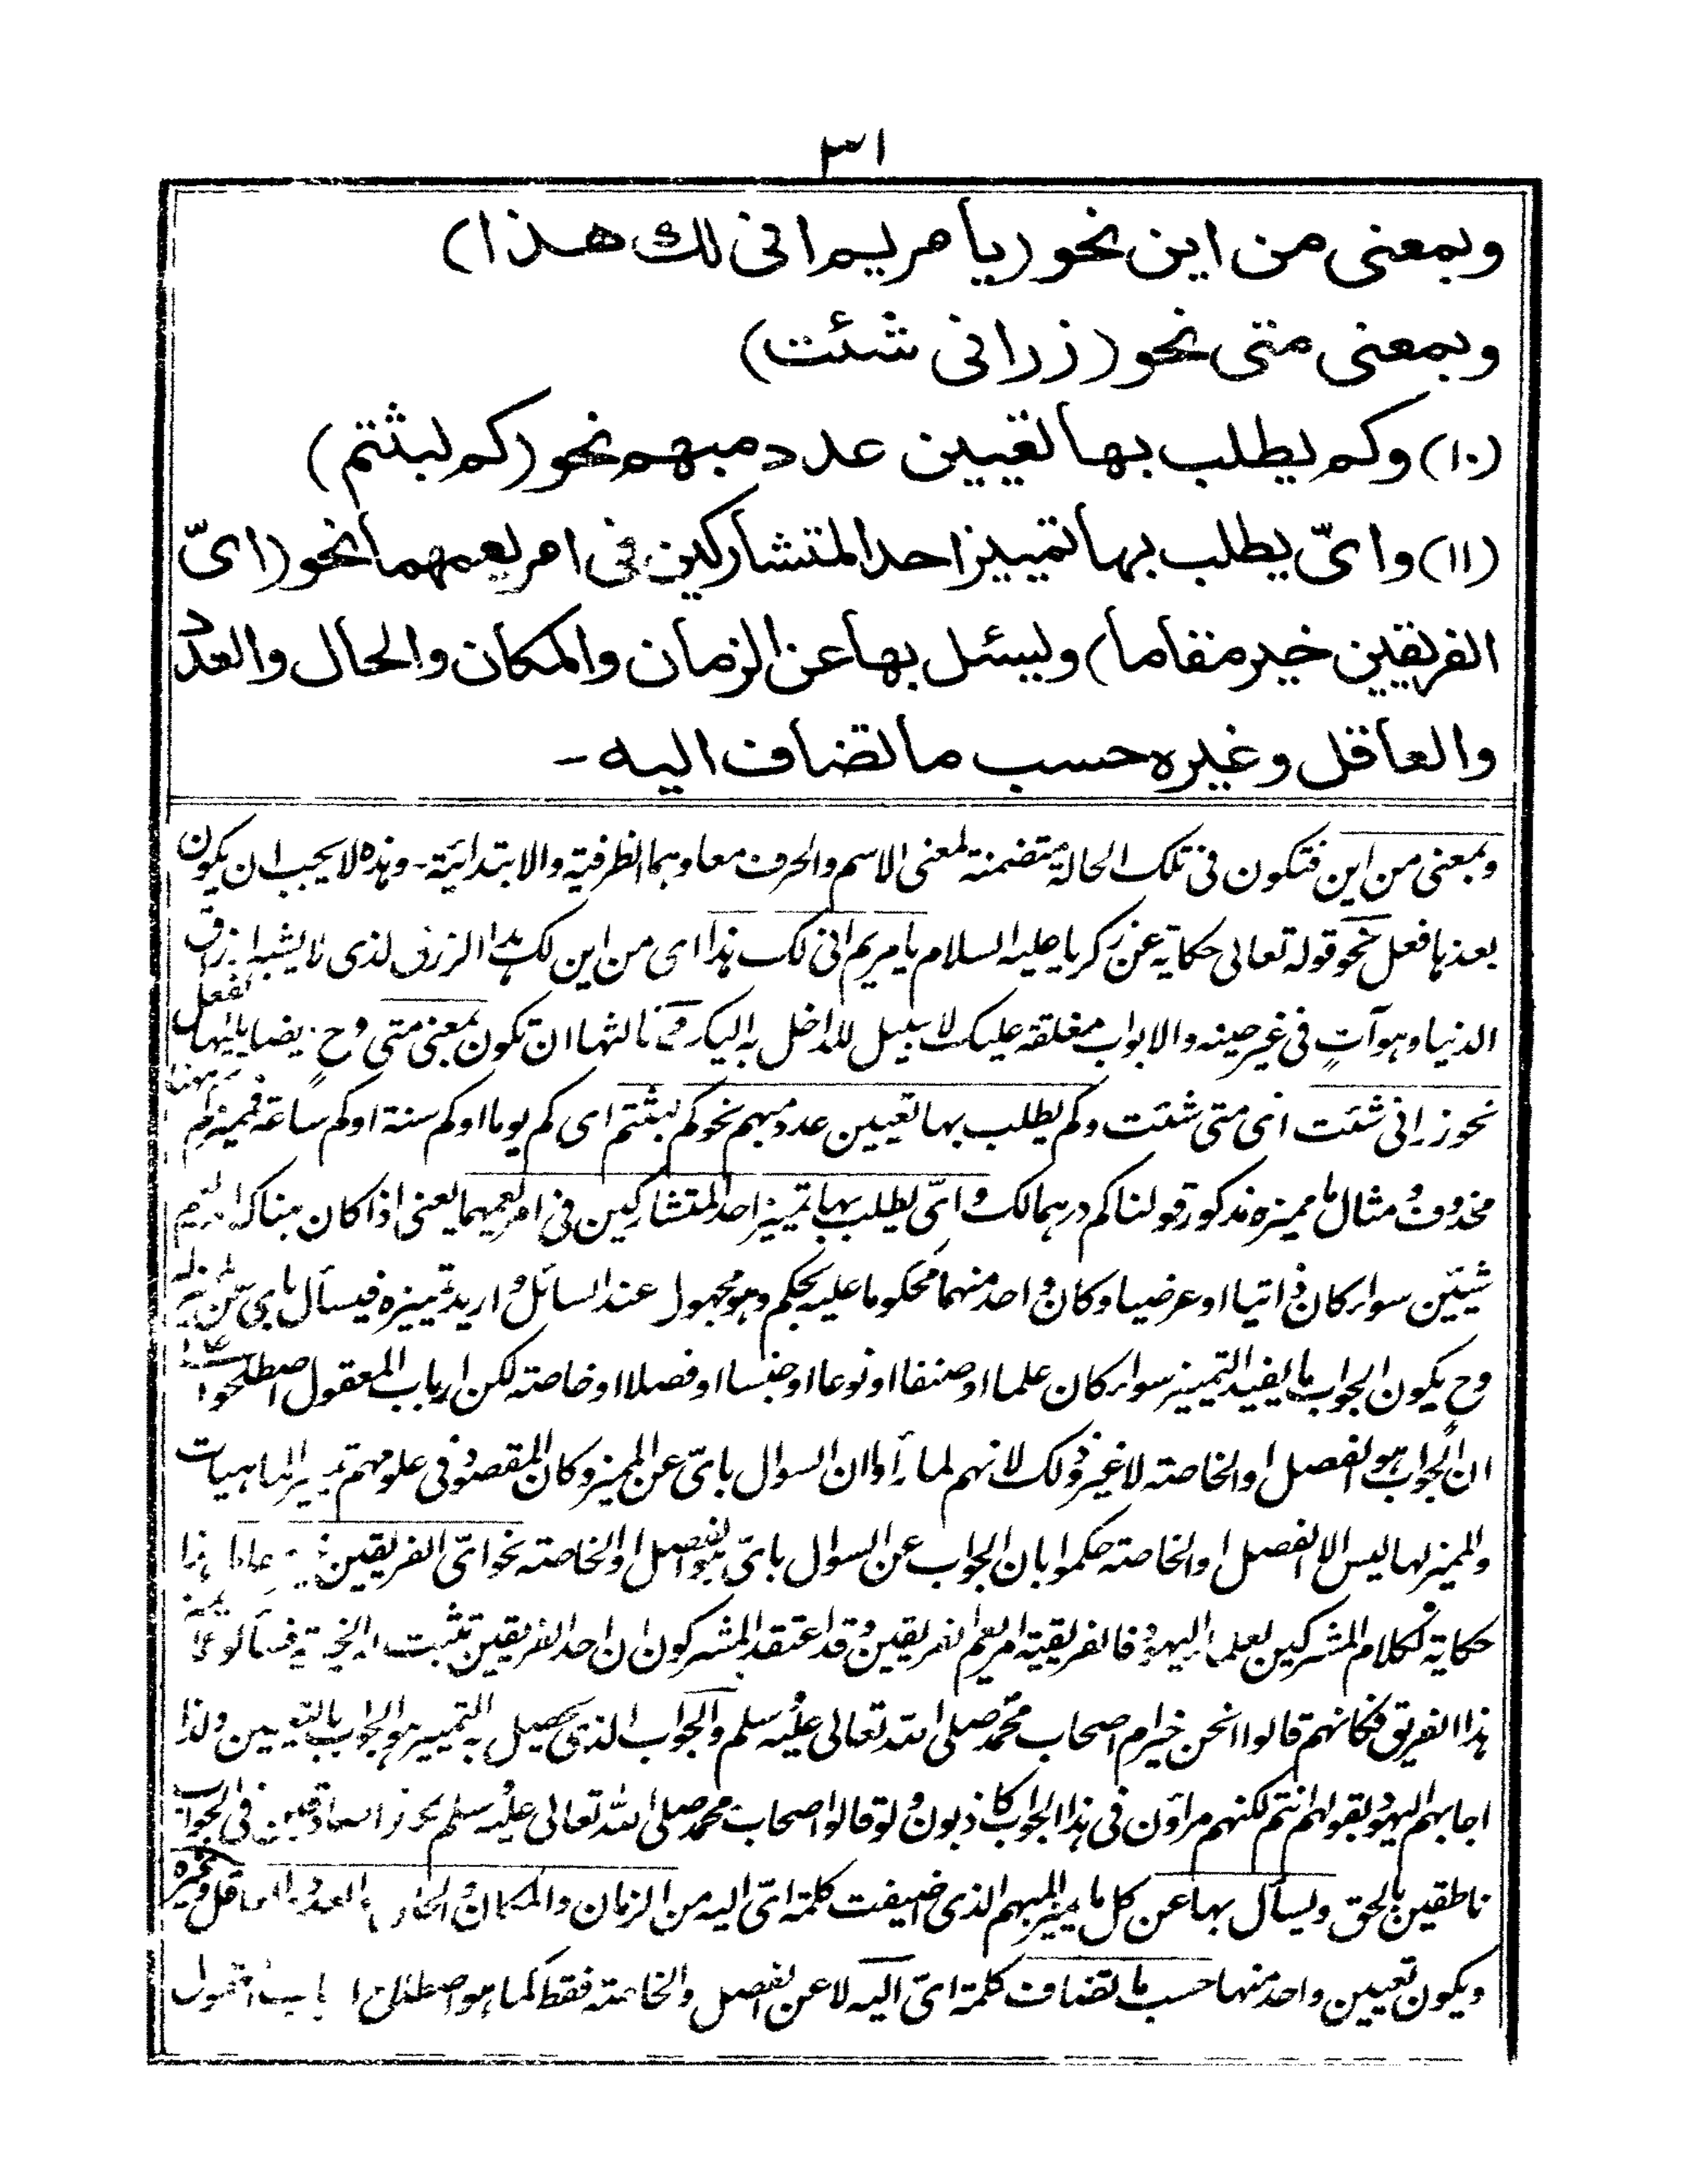 ٣١
وبمعنى من اين نحو (يا مريم انى لك هذا)
وبمعنى متى نحو (زر انى شئت)
(١٠) وكم يطلب بها تعيين عدد مبهم نحو (كم لبثتم)
(١١) واىّ يطلب بها تمييز احد المتشاركين فى امر يعمهما نحو (اىّ
الفريقين خير مقاما) ويسئل بها عن الزمان والمكان والحال والعدد
والعاقل وغيره حسب ما تضاف اليه -
وبمعنى من اين فتكون فى تلك الحالة متضمنة لمعنى الاسم والحرف معا وهما الظرفية والابتدائية - وهذه لا يجب ان يكون
بعدها فعل نحو قوله تعالى حكاية عن زكريا عليه السلام يا مريم انى لك هذا اى من اين لك هذا الرزق الذى لا يشبه ارزاق
الدنيا وهو آت فى غير حينه والابواب مغلقة عليك لا سبيل للداخل به اليك و ثالثها ان تكون بمعنى متى وح ايضا يليها الفعل
نحو زر انى شئت اى متى شئت وكم يطلب بها تعيين عدد مبهم نحو كم لبثتم اى كم يوما او كم سنة او كم ساعة فمميزكم ههنا
محذوف ومثال ما مميزه مذكور قولنا كم درهما لك واىّ يطلب بها تمييز احد المتشاركين فى امر يعمهما يعنى اذا كان هناك امر يعم
شيئين سواء كان ذاتيا او عرضيا وكان واحد منهما محكوما عليه بحكم وهو مجهول عند السائل واريد تمييزه فيسأل باى عن
وح يكون الجواب ما يفيد التمييز سواء كان علما او صنفا او نوعا او جنسا او فصلا او خاصة لكن ارباب المعقول اصطلحوا
ان الجواب هو الفصل او الخاصة لا غير وذلك لانهم لما رأوا ان السوال باىّ عن المميز وكان المقصود فى علومهم تمييز الماهيات
والمميز لها ليس الا الفصل او الخاصة حكموا بان الجواب عن السوال باىّ هو الفصل او الخاصة نحو اىّ الفريقين خير مقاما هذا
حكاية لكلام المشركين لعلماء اليهود فالفريقية امر يعم الفريقين وقد اعتقد المشركون ان احد الفريقين تثبت له الخيرية فسألوا
هذا الفريق فكانهم قالوا انحن خير ام اصحاب محمد صلى الله تعالى عليه وسلم والجواب الذى يحصل به التمييز هو الجواب بالتعيين ولذا
اجابهم اليهود بقولهم انتم لكنهم مراؤن فى هذا الجواب كاذبون ولو قالوا اصحاب محمد صلى الله تعالى عليه وسلم صادقين فى الجواب
ناطقين بالحق ويسأل بها عن كل ما يميز المبهم الذى اضيفت كلمة اىّ اليه من الزمان والمكان والحال والعدد والعاقل وغيره
ويكون تعيين واحد منها حسب ما تضاف كلمة اىّ اليه لا عن الفصل والخاصة فقط كما هو اصطلاح ارباب المعقول